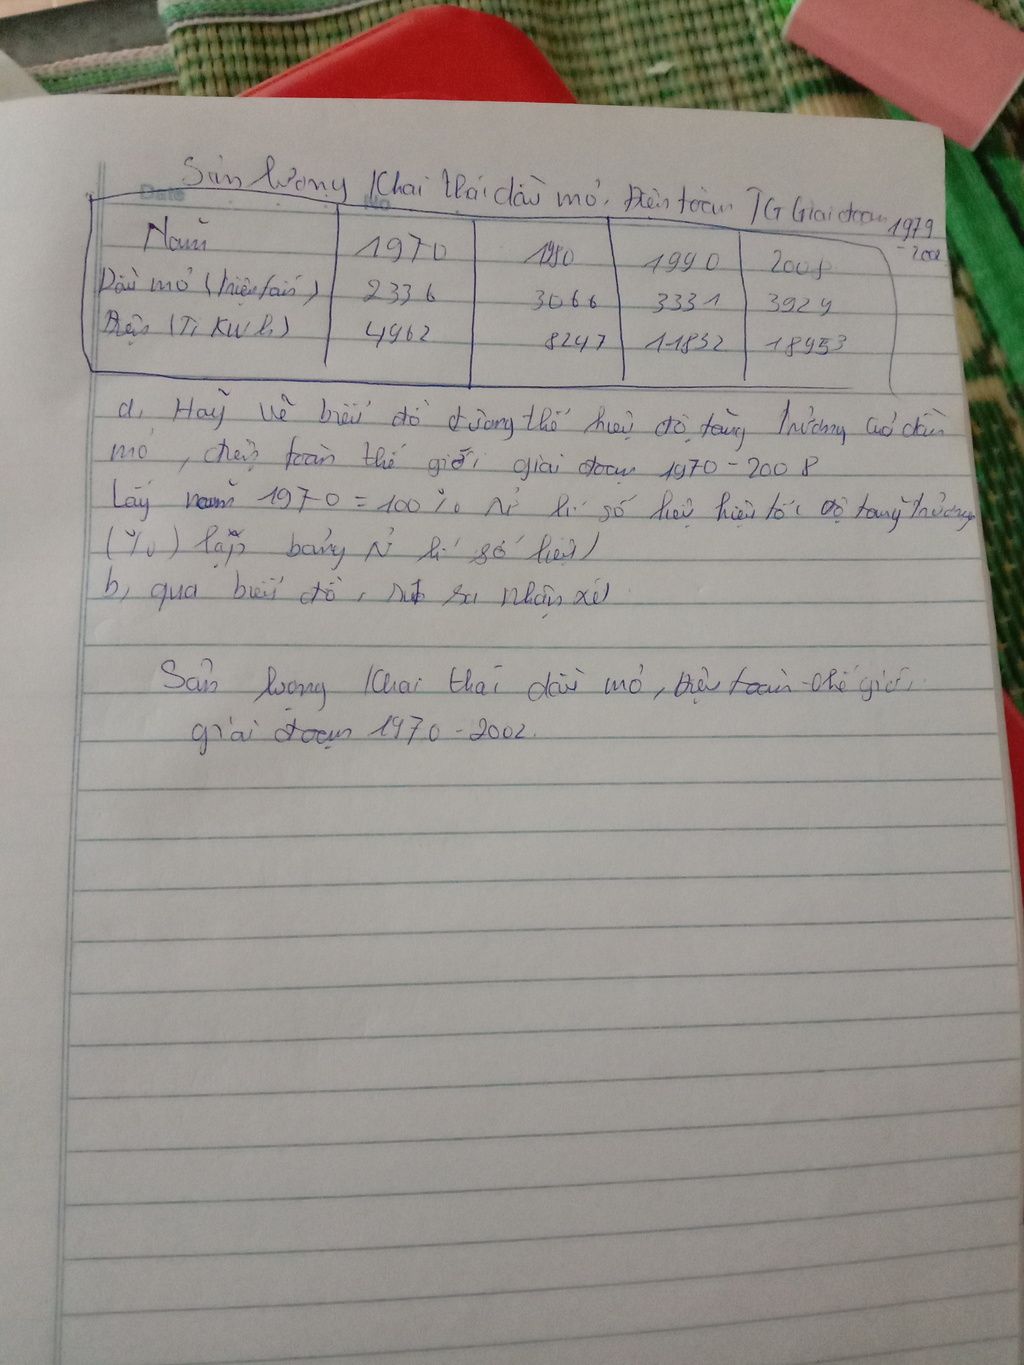 Sản lượng Khai thái dầu mỏ, Điện toàn TG Giai đoạn 1979
- 200
Năm 1970 1980 1990 2008
Dầu mỏ (triệu tấn) 2336 3066 3331 3929
Điện (Tỉ KWh) 4962 8247 11832 18953
a, Hãy vẽ biểu đồ đường thể hiện độ tăng trưởng của dầu
mỏ, điện toàn thế giới giai đoạn 1970 - 2008
Lấy năm 1970 = 100% xử lí số liệu tốc độ tăng trưởng
(%) lập bảng xử lí số liệu)
b, qua biểu đồ, rút ra nhận xét
Sản lượng Khai thái dầu mỏ, điện toàn thế giới
giai đoạn 1970 - 2002.